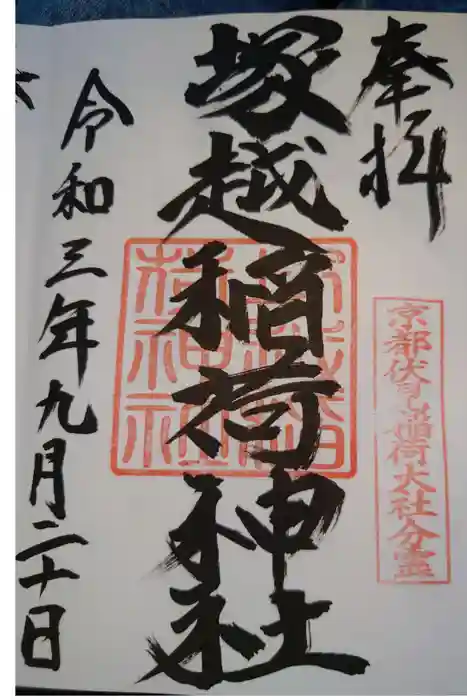 奉拝
京都伏見稲荷大社分霊
塚越稲荷神社
塚越稲荷神社
令和三年九月二十日